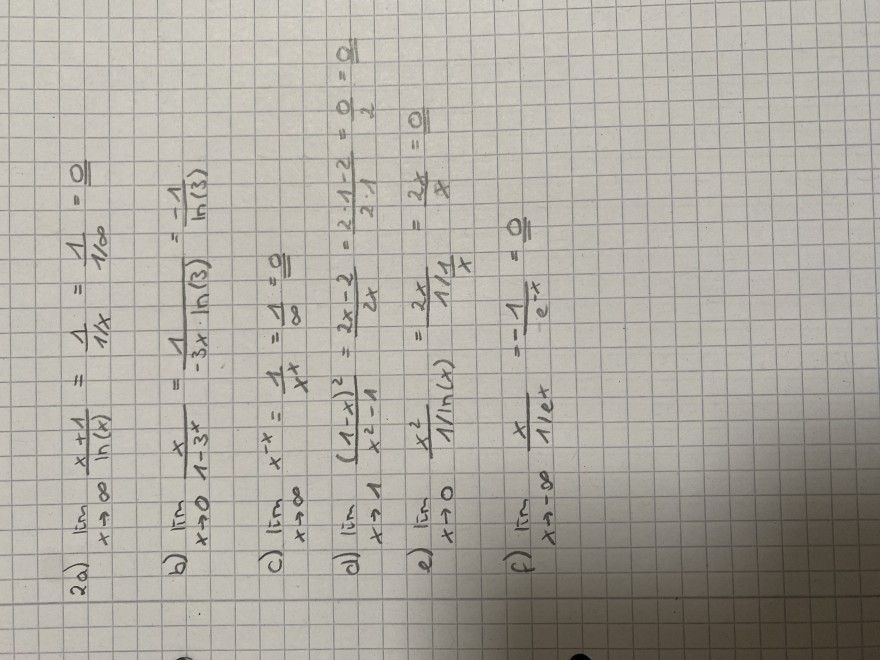 2a) lim x→∞ (x+1)/(ln(x)) = 1/(1/x) = 1/(1/∞) = 0
b) lim x→0 x/(1-3^x) = 1/(-3x · ln(3)) = -1/(ln(3))
c) lim x→∞ x^-x = 1/x^x = 1/∞ = 0
d) lim x→1 (1-x)²/(x²-1) = (2x-2)/(2x) = (2·1-2)/(2·1) = 0/2 = 0
e) lim x→0 x²/(1/ln(x)) = 2x/(1/(1/x)) = 2x/x = 0
f) lim x→-∞ x/(1/e^x) = -1/(e^-x) = 0